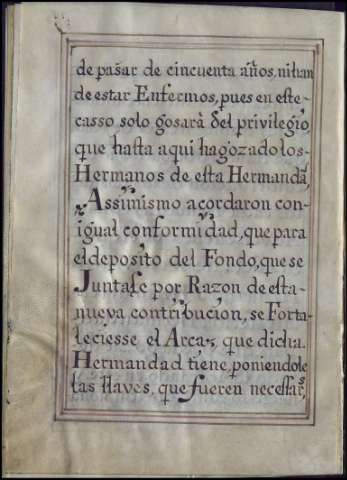 de paſar de cincuenta años, ni han
de estar Enfermos, pues en este-
casso solo gosarà del privilegio,
que hasta aqui ha gozado los-
Hermanos de esta Hermandad,
Assimismo acordaron con-
igual conformidad, que para
el deposito del Fondo, que se
Juntase por Razon de esta-
nueva contribucion, se Forta-
leciesse el Arca, que dicha
Hermandad tiene, poniendole
las llaves, que fueren necessars,